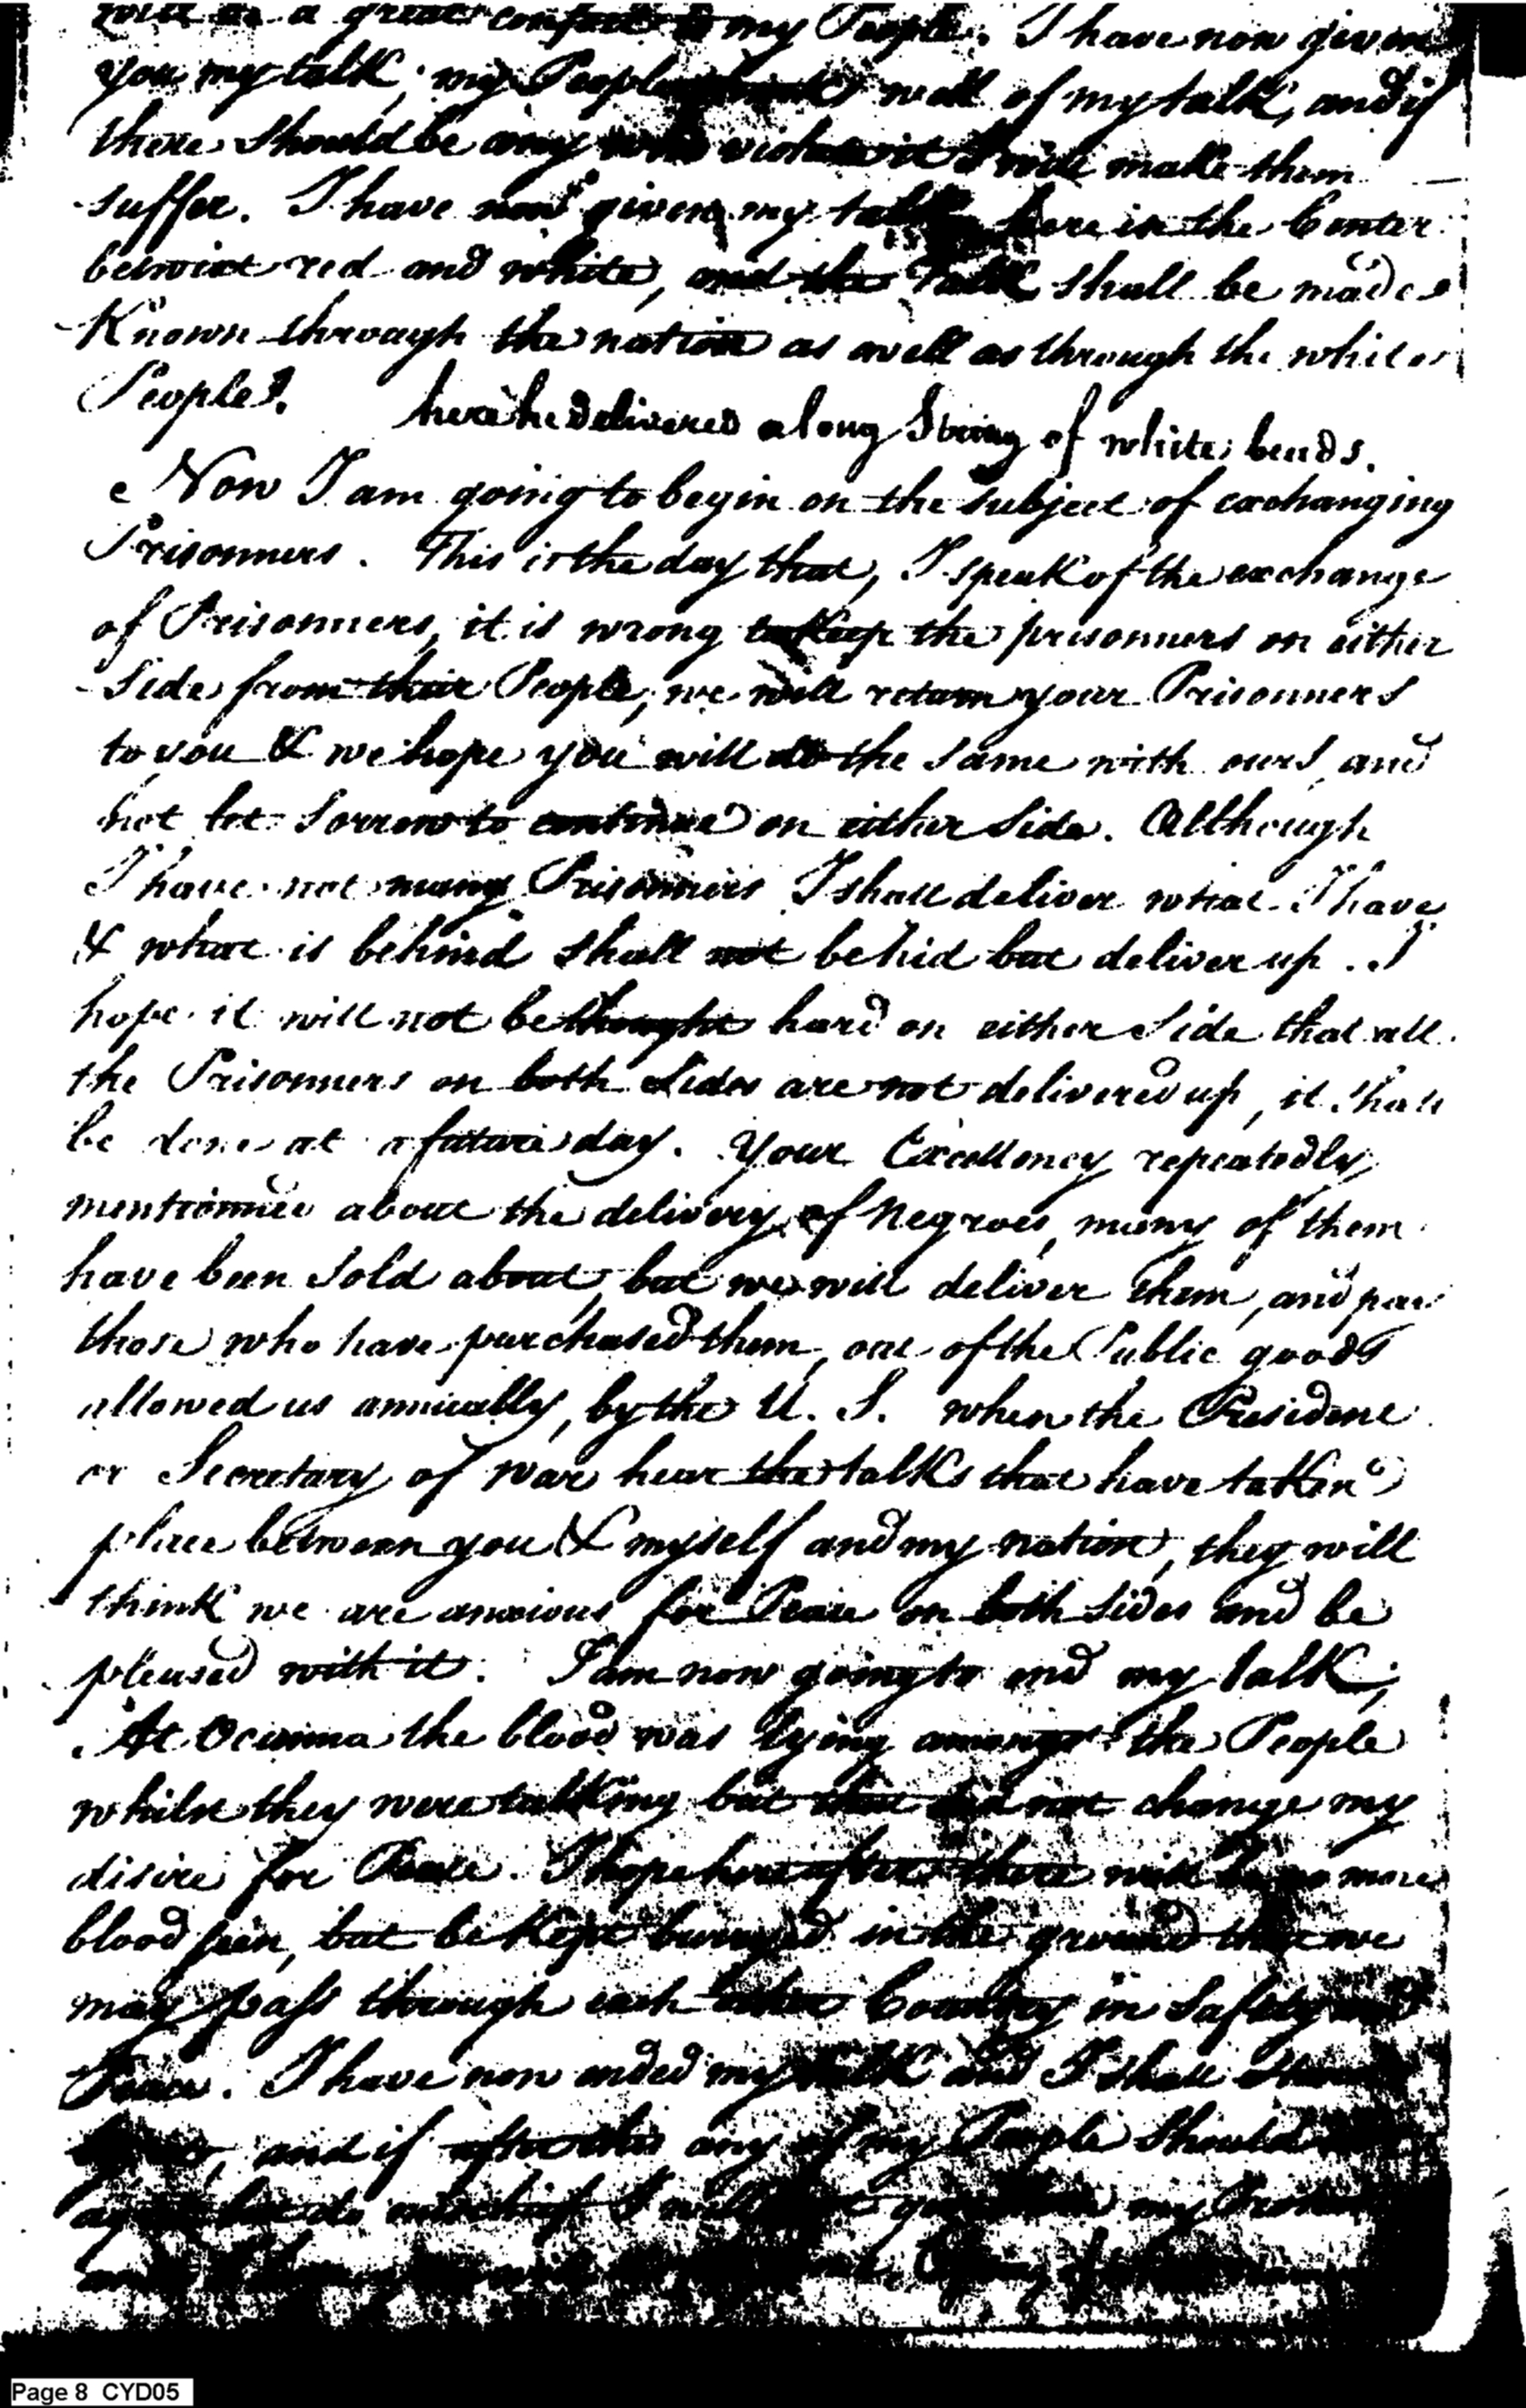 will be a great comfort to my People. I have now given
you my talk, my People well of my talk, and if
there should be any who violate it I will make them
suffer. I have now given my talk here in the Center
betwixt red and white, and the Talk shall be made
Known through the nation as well as through the white
People.  here he delivered a long String of white beads.
Now I am going to begin on the subject of exchanging
Prisonners. This is the day that, I speak of the exchange
of Prisonners, it is wrong to Keep the prisonners on either
Side from their People, we will return your Prisonners
to you & we hope you will do the same with ours, and
not let Sorrow to continue on either Side. Although
I have not many Prisonners I shall deliver what I have
& what is behind shall not be hid but deliver up. I
hope it will not be thought hard on either Side that all
the Prisonners on both Sides are not delivered up, it shall
be done at a future day. Your Excellency repeatedly
mentionned about the delivery of Negroes, many of them
have been Sold about, but we will deliver them, and pay
those who have purchased them, out of the Public goods
allowed us annually, by the U. S. when the President
or Secretary of War hear the talks that have taken
place between you & myself and my nation, they will
think we are anxious for Peace on both Sides and be
pleased with it. I am now going to end my talk;
At Ocunna the blood was lying amongst the People
whilst they were talking but that did not change my
disire for Peace. I hope hereafter there will be no more
blood seen, but be Kept burryed in the ground that we
may pass through each other Country in Safety and
Peace. I have now ended my talk and I shall
and if after this any of my People should
do mischief I will my